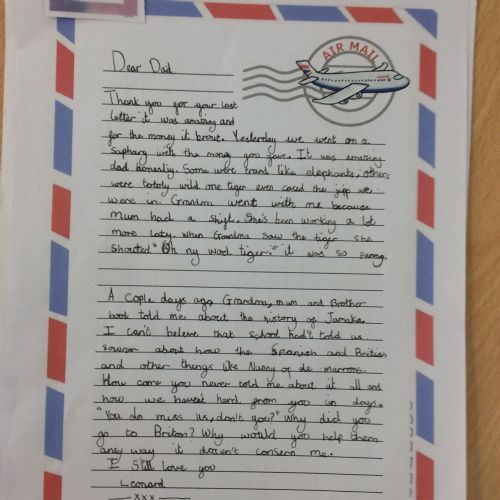 AIR MAIL
Dear Dad
Thank you for your last
letter it was amazing and
for the money it brout. Yesterday we went on a
sapharg with the money you gave. It was amazing
dad honestly. Some were frant like elephants, others
were totoly wild one tiger even cased the jeep we
were in. Grandma went with me because
mum had a shift. She's been working a lot
more latly. When Grandma saw the tiger she
shouted "Oh my word tiger!" it was so funny.
A cople days ago Grandma, mum and Brother
book told me about the history of Jamake
I can't believe that school had't told us
sooner about how the Spanish and British
and other things like Nanny of de marrons.
How come you never told me about it all and
how we havent hard from you in days.
"You do miss us, don't you?" Why did you
go to Briton? Why would you help them
aney way it doesn't consern me.
I Still love you
Leonard
xxx